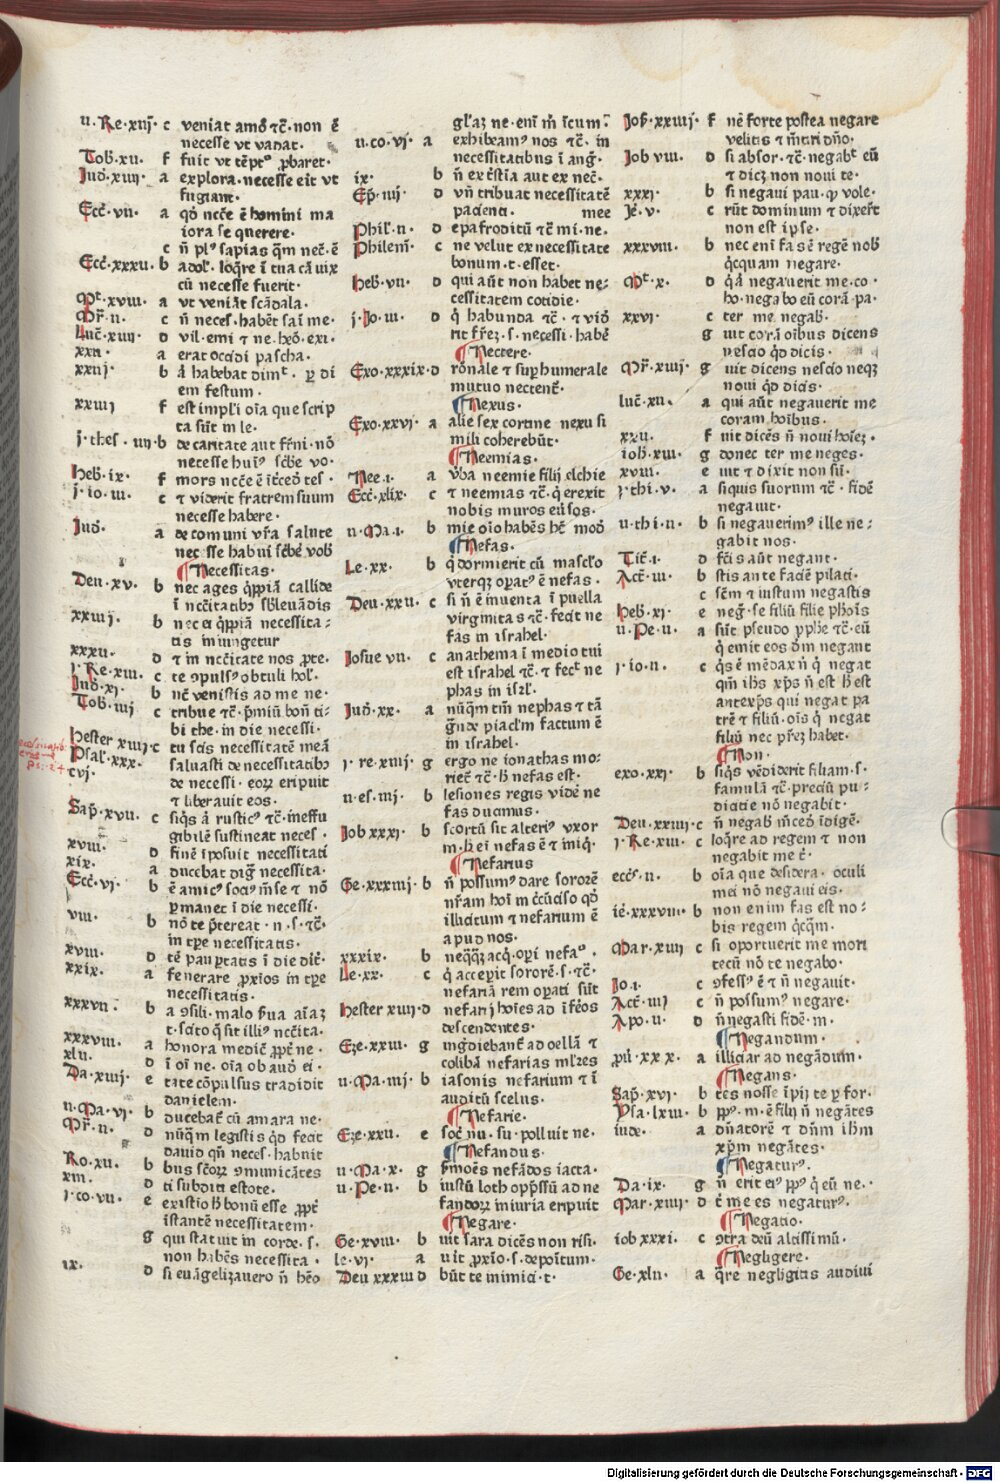 u. Re. xuj. c veniat amō tc̄. non ē
necesse vt vadat.
Tob. xu. f fuit vt tēptꝰ ꝓbaret.
Jud. xuj. a explora. necesse eit vt
fugiant.
Ecc̄. vn. a qō ncc̄e ē homini ma
iora se querere.
c n̄ plꝰ sapias q̄m nec̄. ē
Ecc̄. xxxu. b adol. loq̄re ī tua cā vix
cū necesse fuerit.
Mt. xviii. a vt veniāt scādala.
Mr̄. n. c n̄ neces. habēt saī me.
Luc̄. xiiij. d vil. emi t ne. hēo. exi.
xxn. a erat occidi pascha.
xxiij. b ā habebat dimt. ꝑ di
em festum.
xxiiij f est impl'i oīa que scrip
ta sūt in le.
j. thes. iiij. b de caritate aut fr̄ni. nō
necesse huiꝰ sc̄be vo.
Heb. ix. f mors ncc̄e ē īt̄ced̄ tes.
j. io. iii. c t viderit fratrem suum
necesse habere.
Jud. a de comuni vr̄a salute
necesse habui sc̄be vob̄
Necessitas.
Deu. xv. b nec ages q̄ppiā callide
ī ncc̄itatibꝰ sb̄leuādis
xxiiij. b nec ei q̄ppiā necessita-
tis iniungetur
xxxu. d t in ncc̄itate nos ꝓte.
j. Re. xiii. c te ꝯpulsꝰ obtuli hol'.
Jud. xj. b nc̄ venistis ad me ne.
Tob. iiij c tribue tc̄. p̄miū bon̄ ti-
bi the. in die necessi.
Hester xiiij. c tu scis necessitatē meā
Psal'. xxx. saluasti de necessitatibꝰ
cvj. de necessi. eorꝫ eripuit
t liberauit eos.
Sap̄. xvu. c siq̄s ā rusticꝰ tc̄. ineffu
gibilē sustineat neces.
xviii. d finē īposuit necessitati
xix. a ducebat dig̅ necessita.
Ecc̄. vj. b ē amicꝰ sociꝰ m̄se t nō
ꝑmanet ī die necessi.
viii. b nō te p̄tereat. n. s. tc̄.
in tꝑe necessitatis.
xviii. d tē paupertatis ī die dic̄.
xxix. a fenerare ꝓxīos in tꝑe
necessitatis.
xxxvn. b a ꝯsili. malo s̄ua aīaꝫ
t. scito q̄ sit illiꝰ ncc̄ita.
xxxviii. a honora medic̄ ꝓpt̄ ne.
xlii. d ī oī ne. oīa ob audi ei.
Da. xiiij. e tate cōpulsus tradidit
danielem.
u. Ma. vj. b ducebat̄ cū amara ne.
Mr̄. n. d nūq̄m legistis qd̄ fecit
dauid qn̄ neces. habuit
Ro. xu. b bus sc̄orꝫ ꝯmunicātes
xiii. d ti subditi estote.
j. co. vn. e existio h̄ bonū esse ꝓpt̄
istantē necessitatem.
g qui statuit in corde. s.
non habēs necessita.
ix. d si euāgelizauero n̄ hēo
gl'aꝫ ne. enī m̄ īcum.
u. co. vj. a exhibeamꝰ nos tc̄. in
necessitatibus ī ang̅.
ix. b n̄ ex tr̄stia aut ex nec̄.
Ep̄. iiij d vn̄ tribuat necessitatē
pacienti. mee
Phil'. n. d epafroditū tc̄ mi. ne.
Philem̄. c ne velut ex necessitate
bonum. t. esset.
Heb. vn. d qui aūt non habet ne-
cessitatem cotidie.
j. Jo. iii. d q̄ habunda tc̄. t viō
rit fr̄eꝫ. s. necessi. habē
Nectere.
Exo. xxxix. d rōnale t sup̄humerale
mutuo nectent̄.
Nexus.
Exo. xxvj. a alie sex cortine nexu si
mili coherebūt.
Neemias.
Nee. i. a v̄ba neemie filij elchie
Ecc̄. xlix. c t neemias tc̄. q̄ erexit
nobis muros eūsos.
u. Ma. i. b mie oīo habēs hc̄ modō
Nefas.
Le. xx. b q̄ dormierit cū mascl'o
vterqꝫ opatꝰ ē nefas.
Deu. xxu. c si n̄ ē inuenta ī puella
virginitas tc̄. fecit ne
fas in israhel.
Josue vn. c anathema ī medio tui
est israhel tc̄. t fect̄ ne
phas in isrl'.
Jud. xx. a nūq̄m tm̄ nephas t tā
g̅nde piacl'm factum ē
in israhel.
j. re. xiiij. g ergo ne ionathas mo-
riet̄ tc̄. h̄ nefas est.
n. es. iiij. b lesiones regis vidē ne
fas ducimus.
Job xxxj. b scortū sit alteriꝰ vxor
m. h̄ ei nefas ē t iniq̄.
Nefarius
Ge. xxxiiij. b n̄ possumꝰ dare sororē
nr̄am hoī incircūciso qd̄
illicitum t nefarium ē
apud nos.
xxxix. b neq̄q̄ꝫ acq̄. opī nefaꝰ.
Le. xx. c q̄ accepit sororē. s. tc̄.
nefariā rem opati sūt
Hester xiij. d nefarij hoīes ad īfēos
descendentes.
Eze. xxiii. g ing̅diebant̄ ad oellā t
colibā nefarias ml'res
u. Ma. iiij. b iasonis nefarium t ī
auditū scelus.
Nefarie.
Eze. xxii. e soc̄. nu. su. polluit ne.
Nefandus.
u. Ma. x. g s̄moēs nefādos iacta.
u. Pe. n. b iustū loth opp̄ssū ad ne
fandorꝫ iniuria eripuit
Negare.
Ge. xviii. b uit sara dicēs non risi.
le. vi. a uit ꝓxīo. s. depoītum.
Deu xxxiii d būt te inimici. t.
Job. xxiiij. f nē forte postea negare
velitis t m̄tiri dn̄o.
Job viii. d si absor. tc̄. negab̄t eū
t dic̄ꝫ non noui te.
xxxj. b si negaui pau. qꝫ vole.
Je. v. c rūt dominum t dixer̄t
non est ipse.
xxxviii. b nec enī fas ē regē nob̄
q̄cquam negare.
Mt. x. d q̄ ā negauerit me. co.
ho. negabo eū corā. pa.
xxvj. c ter me negab.
g uit corā oībus dicens
nescio qd̄ dicis.
Mr̄. xiiij. g uit dicens nescio neqꝫ
noui qd̄ dicis.
luc̄. xii. a qui aūt negauerit me
coram hoībus.
xxii. f uit dicēs n̄ noui hoīeꝫ.
ioh. xiii. g donec ter me neges.
xviii. e uit t dixit non sū.
j. thi. v. a siquis suorum tc̄. fidē
negauit.
u. thi. n. b si negauerimꝰ ille ne-
gabit nos.
Tit̄. i. d fc̄is aūt negant.
Act̄. iii. b stis ante faciē pilati.
c sc̄m t iustum negastis
Heb. xj. e neg̅. se filiū filie ph̄ois
u. Pe. n. a sūt pseudo ꝓph̄e tc̄. eū
q̄ emit eos dn̄m negant
j. io. n. c q̄s ē mēdax n̄ q̄ negat
qm̄ ih̄s xp̄s n̄ est h̄ est
antexp̄s qui negat pa
trē t filiū. oīs q̄ negat
filiū nec pr̄eꝫ habet.
Non.
exo. xxj. b siq̄s vēdiderit filiam. s.
famulā tc̄. preciū pu-
dicitie nō negabit.
Deu. xxiiij. c n̄ negab̄ m̄cedē īdigē.
j. Re. xiii. c loq̄re ad regem t non
negabit me t̄.
ecc̄s. n. b oīa que desidera. oculi
mei nō negaui eis.
ie. xxxviii. b non enim fas est no-
bis regem q̄cq̄m.
Mar. xiiij c si oportuerit me mori
tecū nō te negabo.
Jo. i. c ꝯfessꝰ ē t n̄ negauit.
Act̄. iiij c n̄ possumꝰ negare.
Apo. ii. d n̄ negasti fidē. m.
Negandum.
ps̄. xxx. a illiciar ad negādum.
Negans.
Sap̄. xvj. b tes nosse īpij te ꝑ for.
Psa. lxiii. b ꝓpꝰ. m. ē filij n̄ negātes
iude. a dn̄atorē t dn̄m ih̄m
xp̄m negātes.
Negaturꝰ.
Da. ix. g n̄ erit eiꝰ ꝓpꝰ q̄ eū ne.
Mar. xiiij d t̄ me es negaturꝰ.
Negatio.
iob xxxi. c ꝯtra deū altissimū.
Negligere.
Ge. xlii. a q̄re negligitis audiui
Digitalisierung gefördert durch die Deutsche Forschungsgemeinschaft - DFG